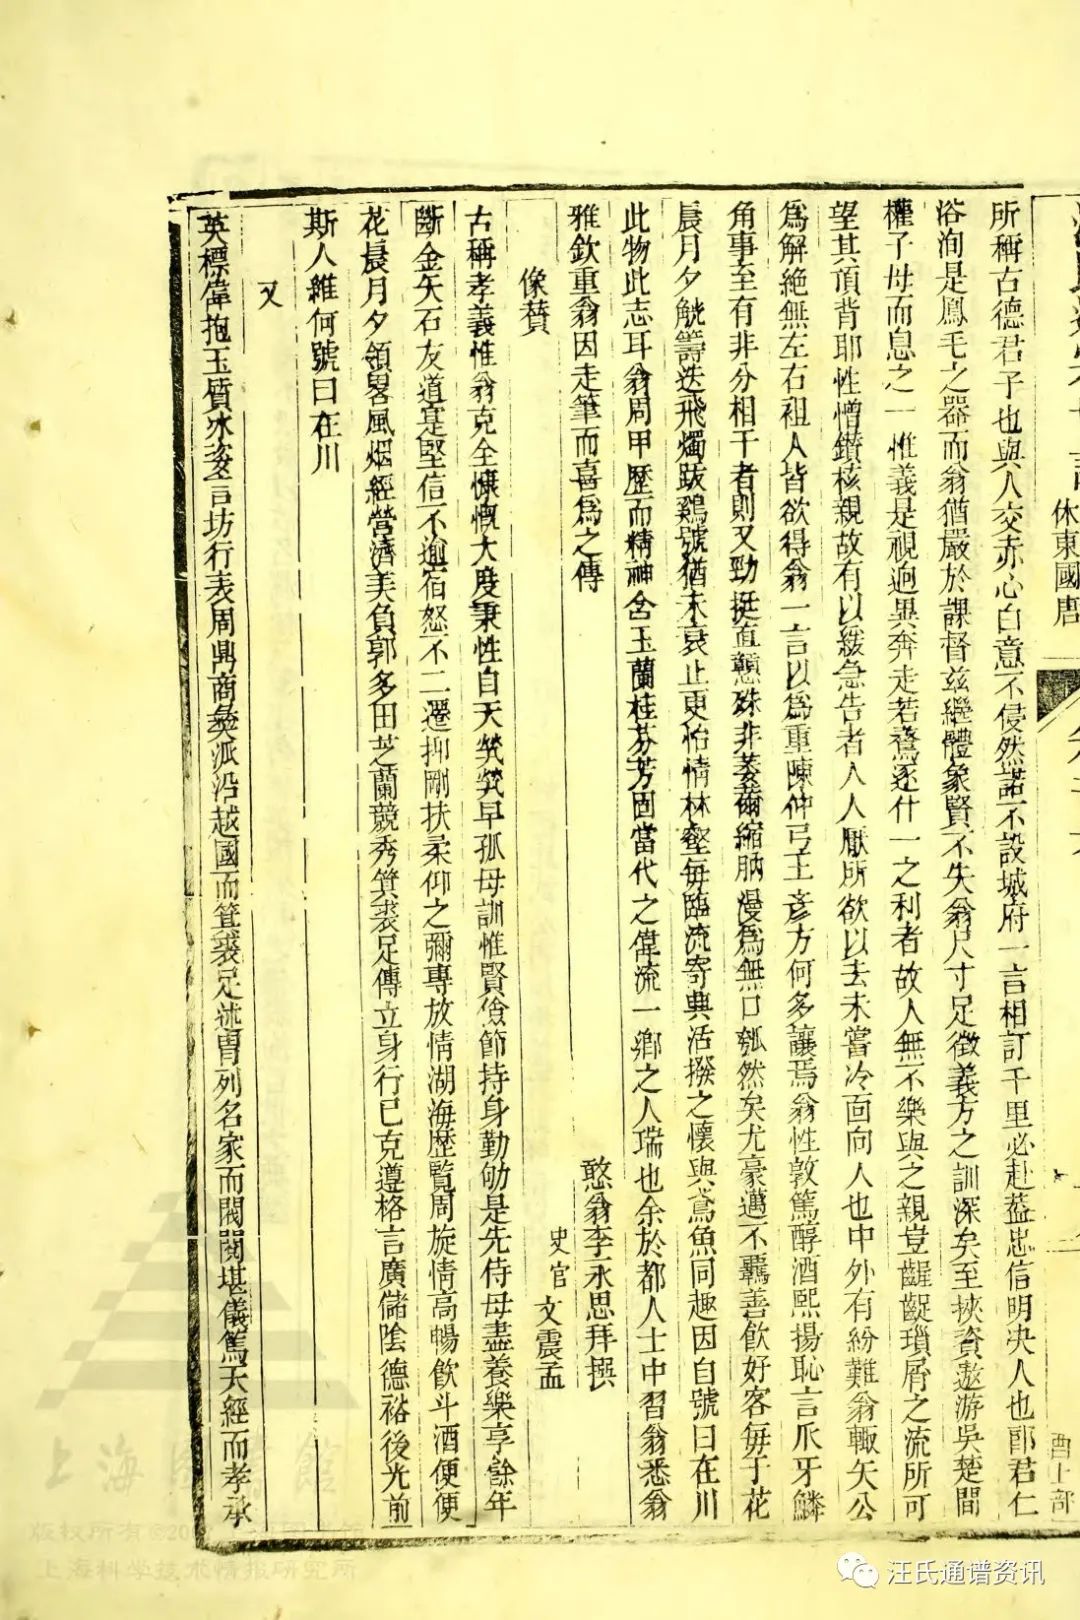 休東國唐
酉上部
所稱古德君子也與人交赤心白意不侵然諾不設城府一言相訂千里必赴蓋忠信明決人也郎君仁
浴洵是鳳毛之器而翁猶嚴於課督玆繼體象賢不失翁尺寸足徵義方之訓深矣至挾資遨游吳楚間
權子母而息之一惟義是視迥異奔走若鶩逐什一之利者故人無不樂與之親豈齷齪瑣屑之流所可
望其頂背耶性憎鑽核親故有以緩急告者人人厭所欲以去未嘗冷面向人也中外有紛難翁輙矢公
爲解絶無左右袒人皆欲得翁一言以爲重陳仲弓王彥方何多讓焉翁性敦篤醇酒熙揚恥言爪牙鱗
角事至有非分相干者則又勁挺直戇殊非萎薾縮朒漫爲無口瓠然矣尤豪邁不羈善飲好客毎于花
晨月夕觥籌迭飛燭跋鷄號猶未衰止更怡情林壑毎臨流寄興活撥之懷與鳶魚同趣因自號曰在川
此物此志耳翁周甲歷而精神含玉蘭桂芬芳固當代之偉流一鄉之人瑞也余於都人士中習翁悉翁
雅欽重翁因走筆而喜爲之傳
憨翁李永思拜撰
像贊
史官文震孟
古稱孝義惟翁克全慷慨大度秉性自天煢煢早孤母訓惟賢儉節持身勤劬是先侍母盡養樂享餘年
斷金矢石友道寔堅信不逾宿怒不二遷抑剛扶柔仰之彌專放情湖海歷覧周旋情高暢飮斗酒便便
花晨月夕領畧風烟經營濟美負郭多田芝蘭競秀箕裘足傳立身行已克遵格言廣儲陰德裕後光前
斯人維何號曰在川
又
英標偉抱玉質氷姿言坊行表周鼎商彝派沿越國而箕裘足述冑列名家而閥閱堪儀篤天經而孝承
上海圖書館
版权所有©20
上海科学技术情报研究所
汪氏通谱资讯